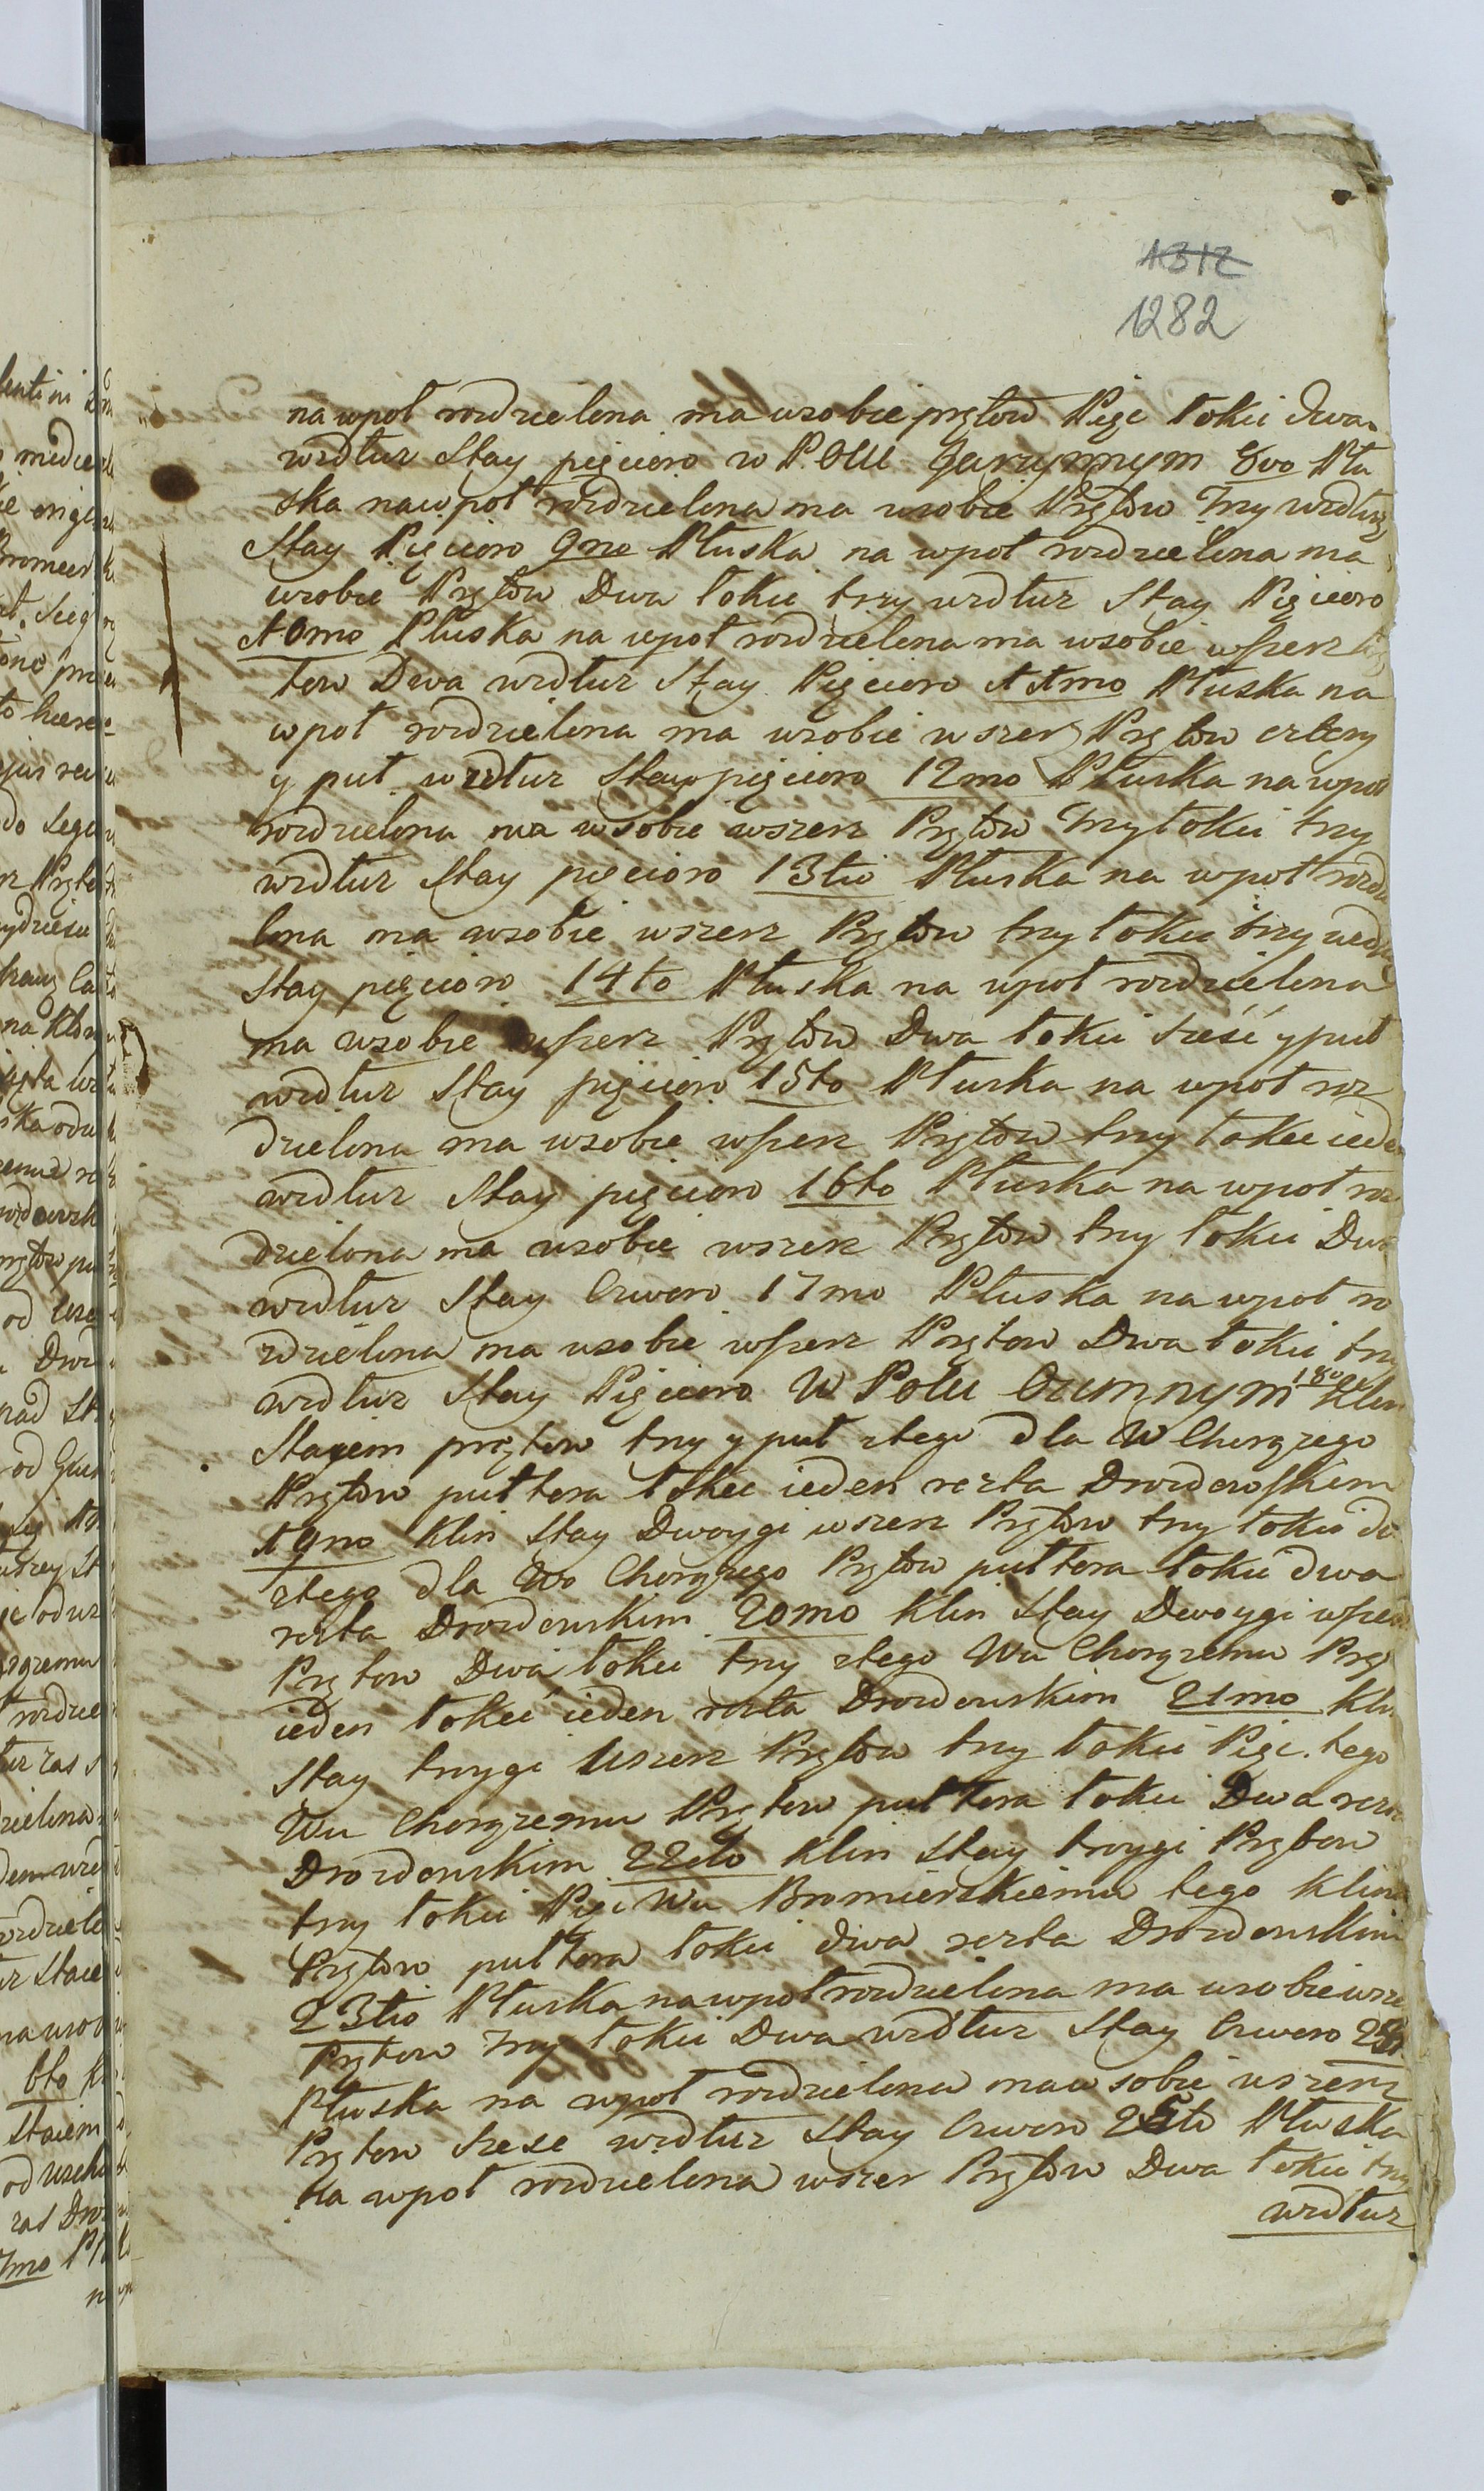 1312
1282
na wpoł rozdzielona ma wsobie prętow Pięc łokci dwa
wzdłuz Stay pięcioro w POLU Jarzynnym 8vo Płu
ska nawpoł rozdzielona ma wsobie Prętow Trzy wzdłuz
Stay Pięcioro 9no Płuska na wpoł rozdzielona ma
wsobie Prętow Dwa łokci trzy wzdłuz Stay Pięcioro
10mo Płuska na wpoł rozdzielona ma wsobie wszerz
tow Dwa wzdłuz Stay Pięcioro 11mo Płuska na
wpoł rozdzielona ma wsobie wszerz Prętow cztery
y puł wzdłuz Stay pięcioro 12mo Płuska na wpoł
rozdzielona ma wsobie wszerz Prętow Trzy łokci trzy
wzdłuz Stay pięcioro 13tio Płuska na wpoł rozdzi
lona ma wsobie wszerz Prętow trzy łokci trzy wzdłuz
Stay pięcioro 14to Płuska na wpoł rozdzielona
ma wsobie wszerz Prętow Dwa łokci sześć y puł
wzdłuz Stay pięcioro 15to Płuska na wpoł roz
dzielona ma wsobie wszerz Prętow trzy łokci ieden
wzdłuz Stay pięcioro 16to Płuska na wpoł roz
dzielona ma wsobie wszerz Prętow trzy łokci Dwa
wzdłuz Stay Czworo 17mo Płuska na wpoł ro
zdzielona ma wsobie wszerz Prętow Dwa łokci trzy
wzdłuz Stay Pięcioro W Polu Ozimnym 18vo Klin
Staiem prętow trzy y puł ztego dla W Chorążego
Prętow pułtora łokci ieden reszta Drozdowskim
19no Klin Stay Dwoygi wszerz Prętow trzy łokci dw
ztego dla Wo Chorążego Prętow pułtora łokci dwa
reszta Drozdowskim 20mo Klin Stay Dwoygi wszerz
Prętow Dwa łokci trzy ztego Wu Chorążemu Pręt
ieden łokeć ieden reszta Drozdowskim 21mo Klin
Stay troygi Wszerz Prętow trzy łokci Pięc tego
Wu Chorążemu Prętow pułtora łokci Dwa reszta
Drozdowskim 22do Klin Stay troygi Prętow
trzy łokci Pięc Wu Bromierskiemu tego Klina
Prętow pułtora łokci dwa reszta Drozdowskim
23tio Płuska nawpoł rozdzielona ma wsobie wsze
Prętow Trzy łokci Dwa wzdłuz Stay Czworo
Płuska na wpoł rozdzielona ma w sobie wszerz
Prętow Szesc wzdłuz Stay Czworo 25to Płuska
na wpoł rozdzielona wszerz Prętow Dwa łokci trzy
wzdłuz